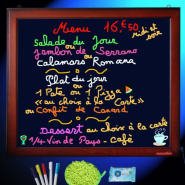 Menu 16,€50
midi et soir
Salade du Jour
ou
Jambon de Serrano
ou
Calamars Romana
Plat du jour
ou
1 Pate ou 1 Pizza
"au choix à la Carte"
ou Confit de Canard
Dessert au choix à la carte
1/4 Vin de Pays - Café